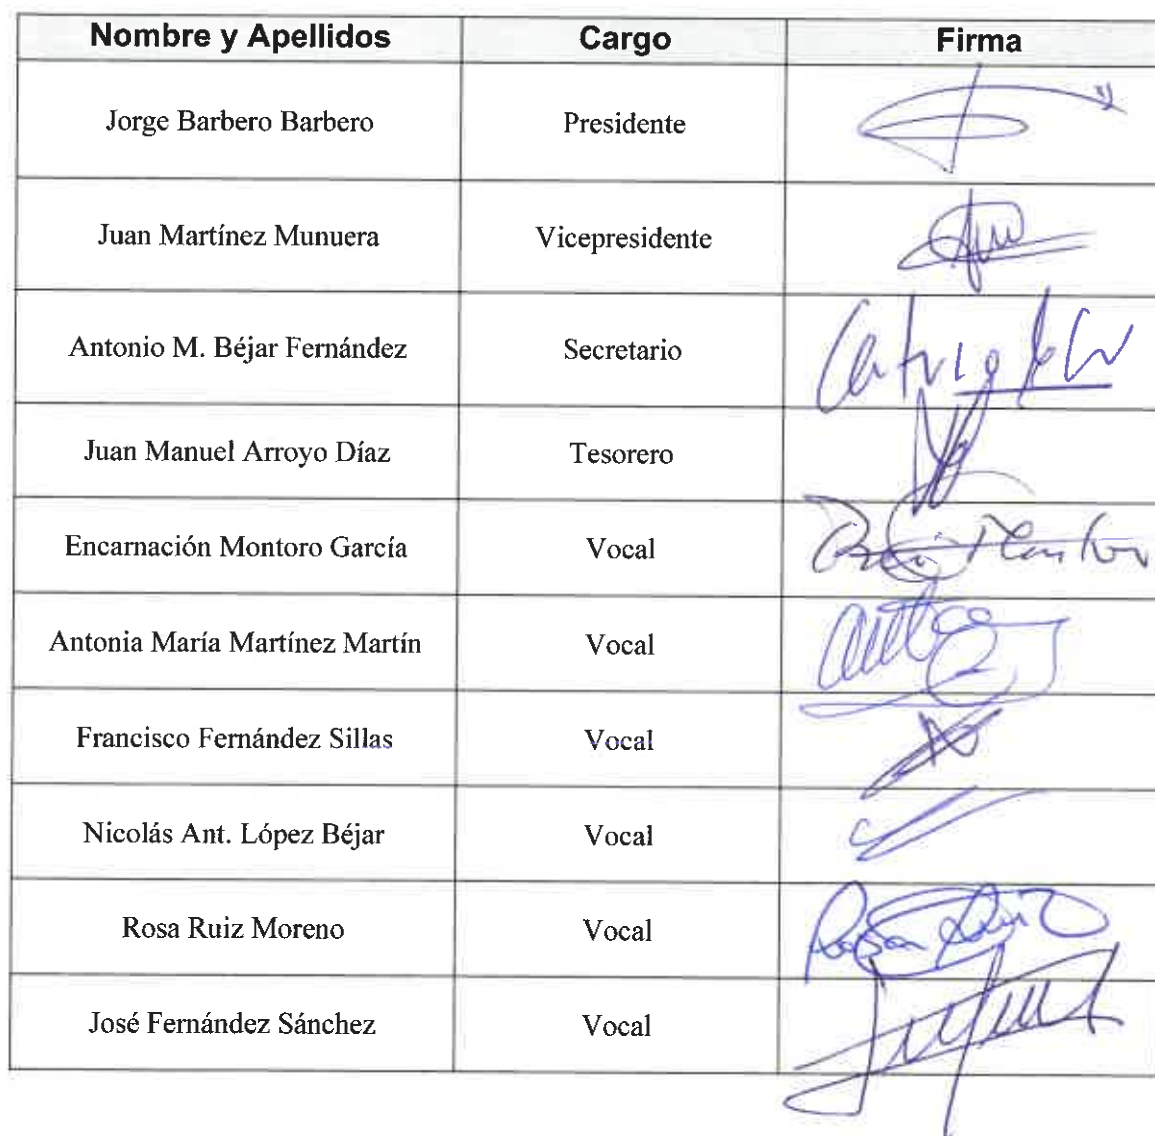 Nombre y Apellidos Cargo Firma
Jorge Barbero Barbero Presidente
Juan Martínez Munuera Vicepresidente
Antonio M. Béjar Fernández Secretario
Juan Manuel Arroyo Díaz Tesorero
Encarnación Montoro García Vocal
Antonia María Martínez Martín Vocal
Francisco Fernández Sillas Vocal
Nicolás Ant. López Béjar Vocal
Rosa Ruiz Moreno Vocal Rosa Ruiz
José Fernández Sánchez Vocal